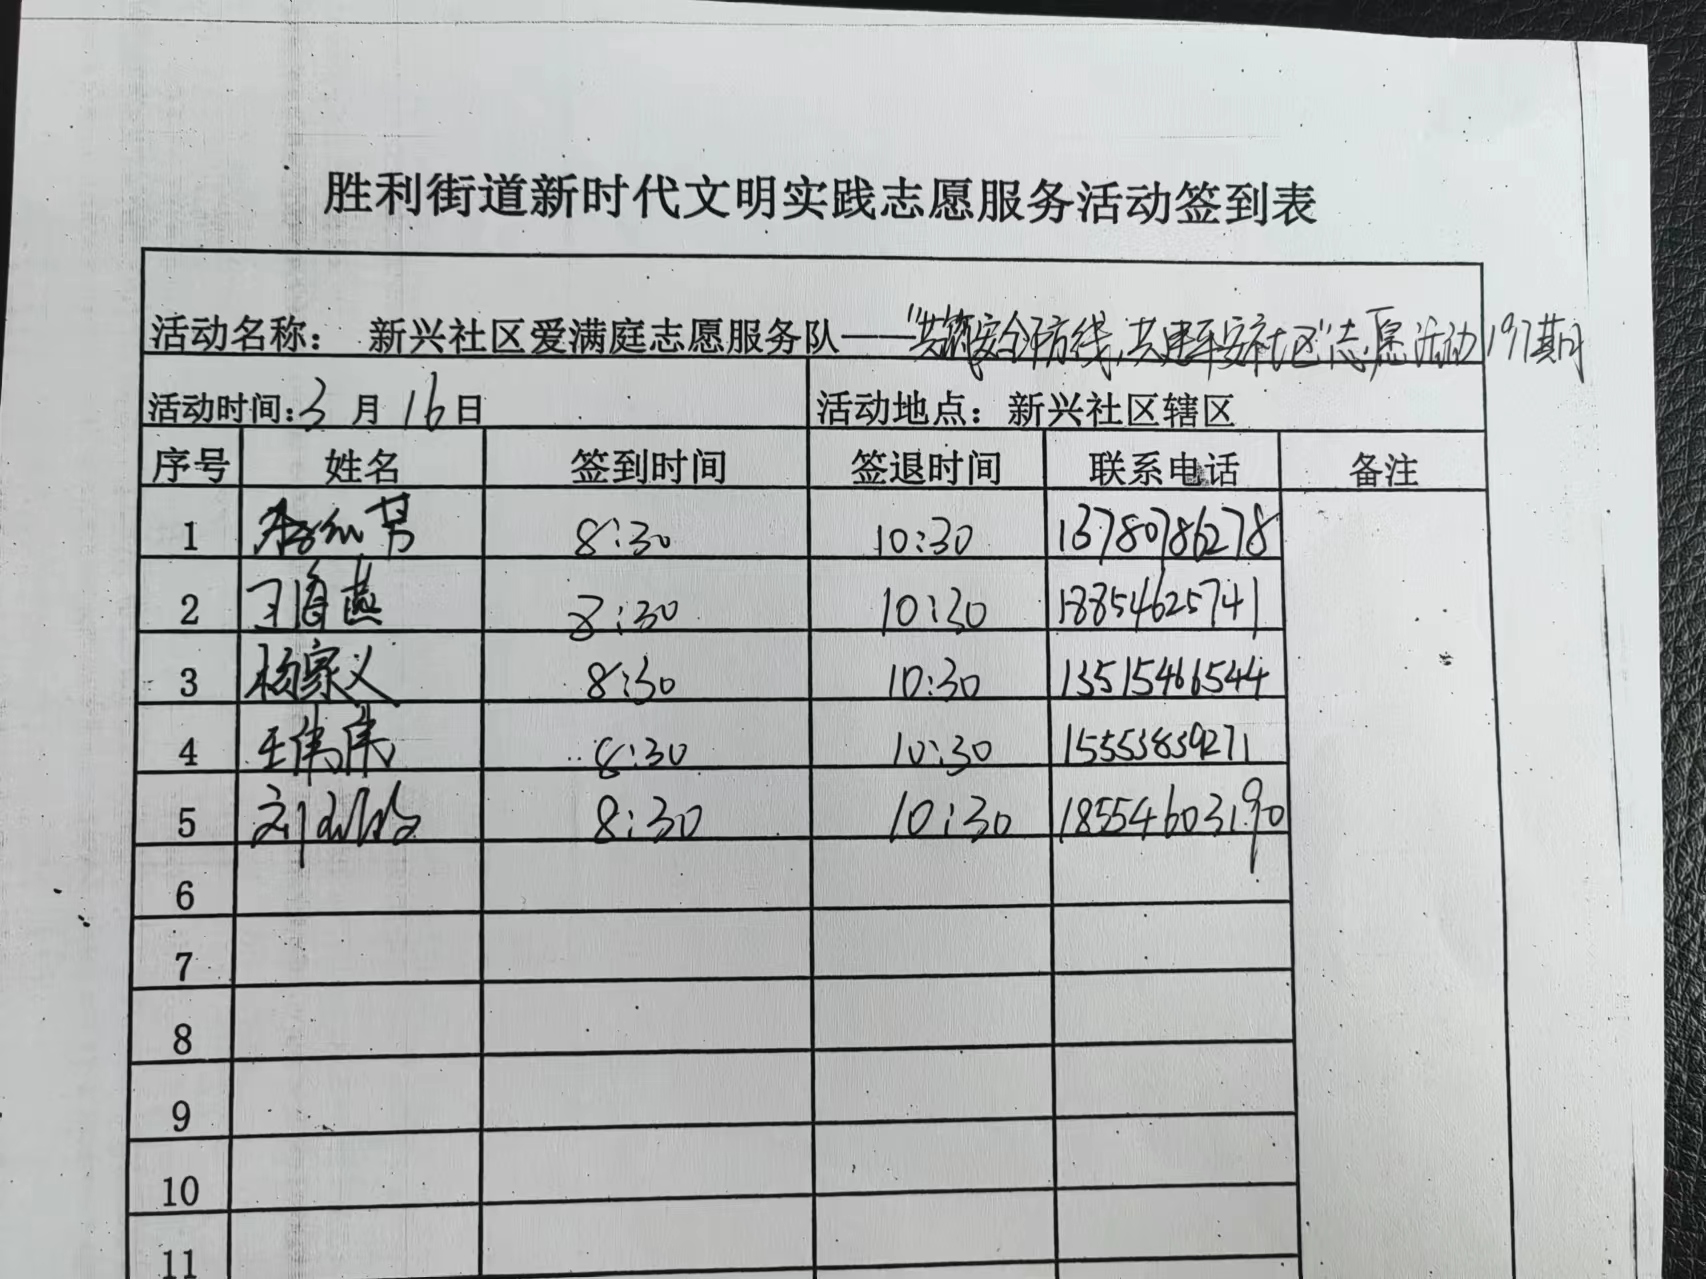 胜利街道新时代文明实践志愿服务活动签到表
活动名称： 新兴社区爱满庭志愿服务队——“共筑安全防线，共建平安社区”志愿活动197期
活动时间：3月16日 活动地点：新兴社区辖区
序号 姓名 签到时间 签退时间 联系电话 备注
1 8:30 10:30 13780786278
2 王海燕 8:30 10:30 18854625741
3 杨家义 8:30 10:30 13515466544
4 王伟伟 8:30 10:30 15553859271
5 刘 8:30 10:30 18554603190
6
7
8
9
10
11